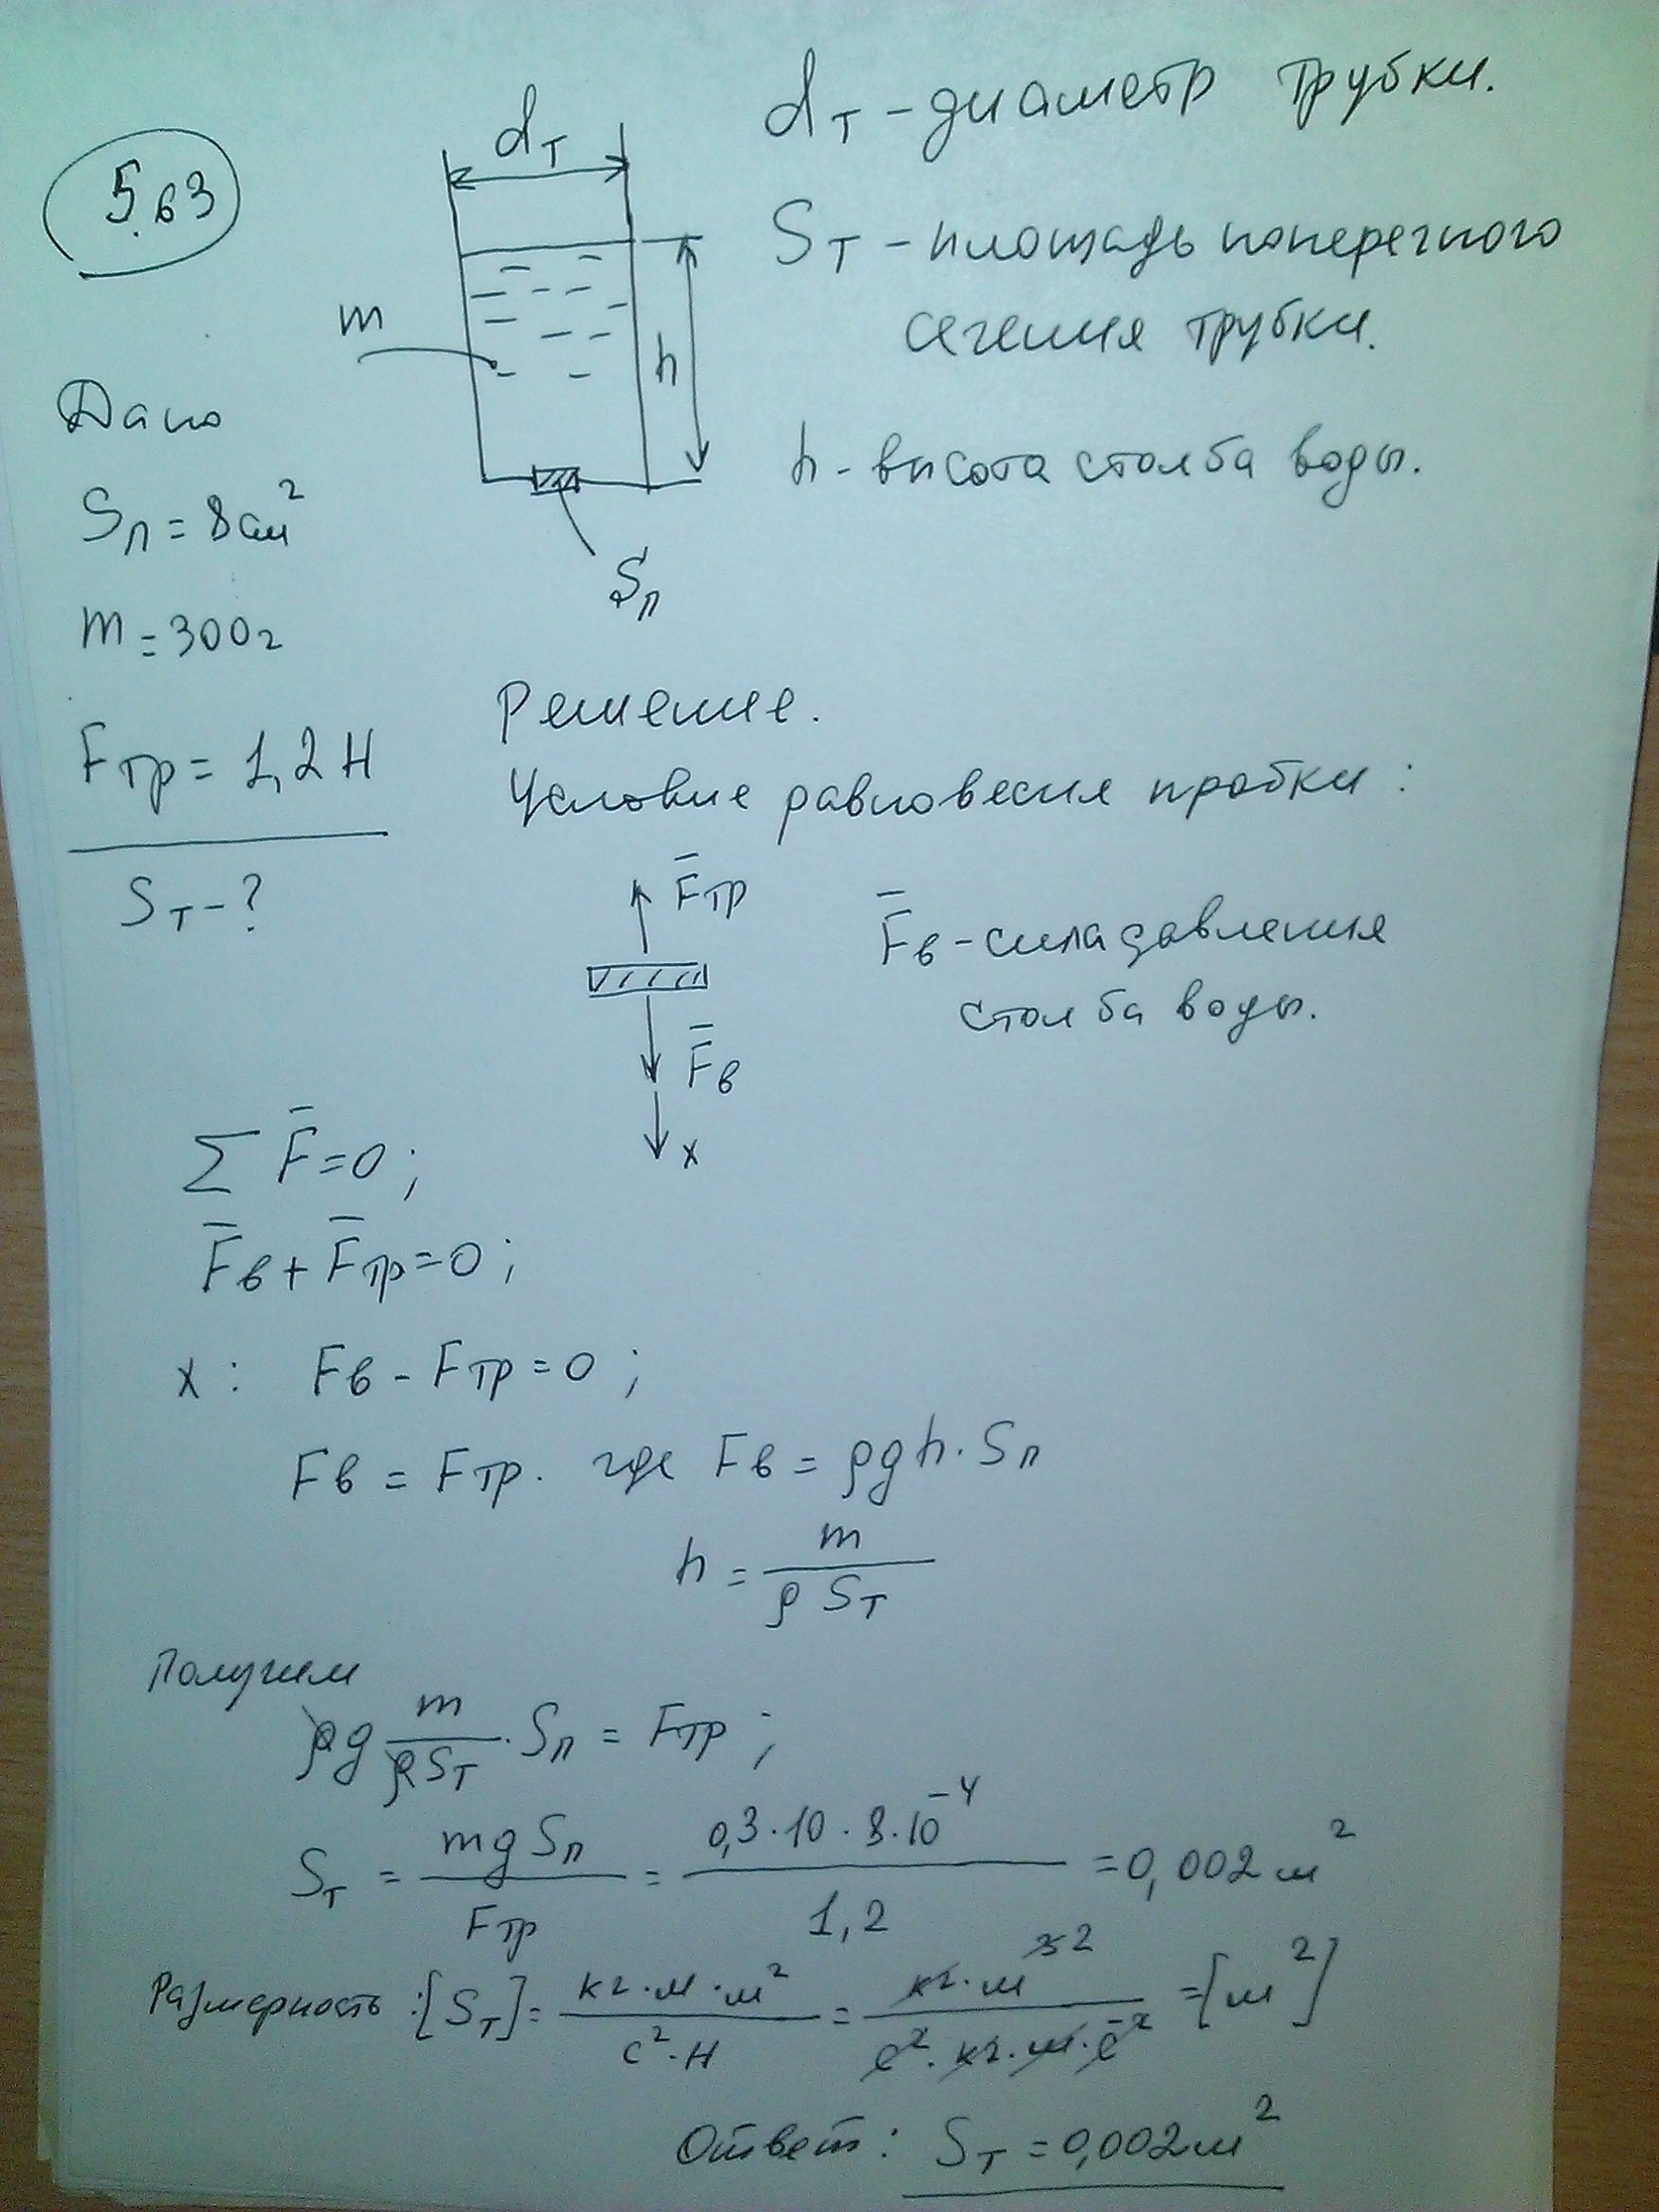 5.63
d_T
m
h
S_п
d_T – диаметр трубки.
S_T – площадь поперечного
сечения трубки.
h – высота столба воды.
Дано
S_п = 8 см²
m = 300 г
F_тр = 1,2 Н
S_T – ?
Решение.
Условие равновесия пробки:
F̄_тр
F̄_в
x
F̄_в – сила давления
столба воды.
∑ F̄ = 0;
F̄_в + F̄_тр = 0;
x: F_в - F_тр = 0;
F_в = F_тр. где F_в = ρgh · S_п
h = m / (ρ S_T)
Получим
ρg m/(ρS_T) · S_п = F_тр;
S_T = mg S_п / F_тр = 0,3 · 10 · 8 · 10⁻⁴ / 1,2 = 0,002 м²
Размерность: [S_T] = кг·м·м² / (с²·Н) = кг·м³ ² / (с²·кг·м·с⁻²) = [м²]
Ответ: S_T = 0,002 м²